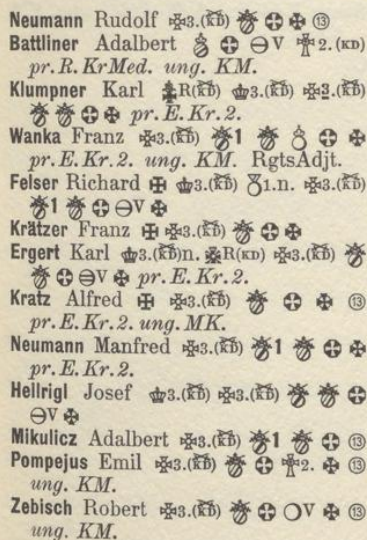 Neumann Rudolf ✠3.(KD) ⑬
Battliner Adalbert V 2.(KD)
pr. R. KrMed. ung. KM.
Klumpner Karl R(KD) 3.(KD) 3.(KD)
pr. E. Kr. 2.
Wanka Franz 3.(KD) 1
pr. E. Kr. 2. ung. KM. RgtsAdjt.
Felser Richard 3.(KD) 1.n. 3.(KD)
1 V
Krätzer Franz 3.(KD)
Ergert Karl 3.(KD)n. R(KD) 3.(KD)
V pr. E. Kr. 2.
Kratz Alfred 3.(KD) ⑬
pr. E. Kr. 2. ung. MK.
Neumann Manfred 3.(KD) 1
pr. E. Kr. 2.
Hellrigl Josef 3.(KD) 3.(KD)
V
Mikulicz Adalbert 3.(KD) 1 ⑬
Pompejus Emil 3.(KD) 2. ⑬
ung. KM.
Zebisch Robert 3.(KD) V ⑬
ung. KM.